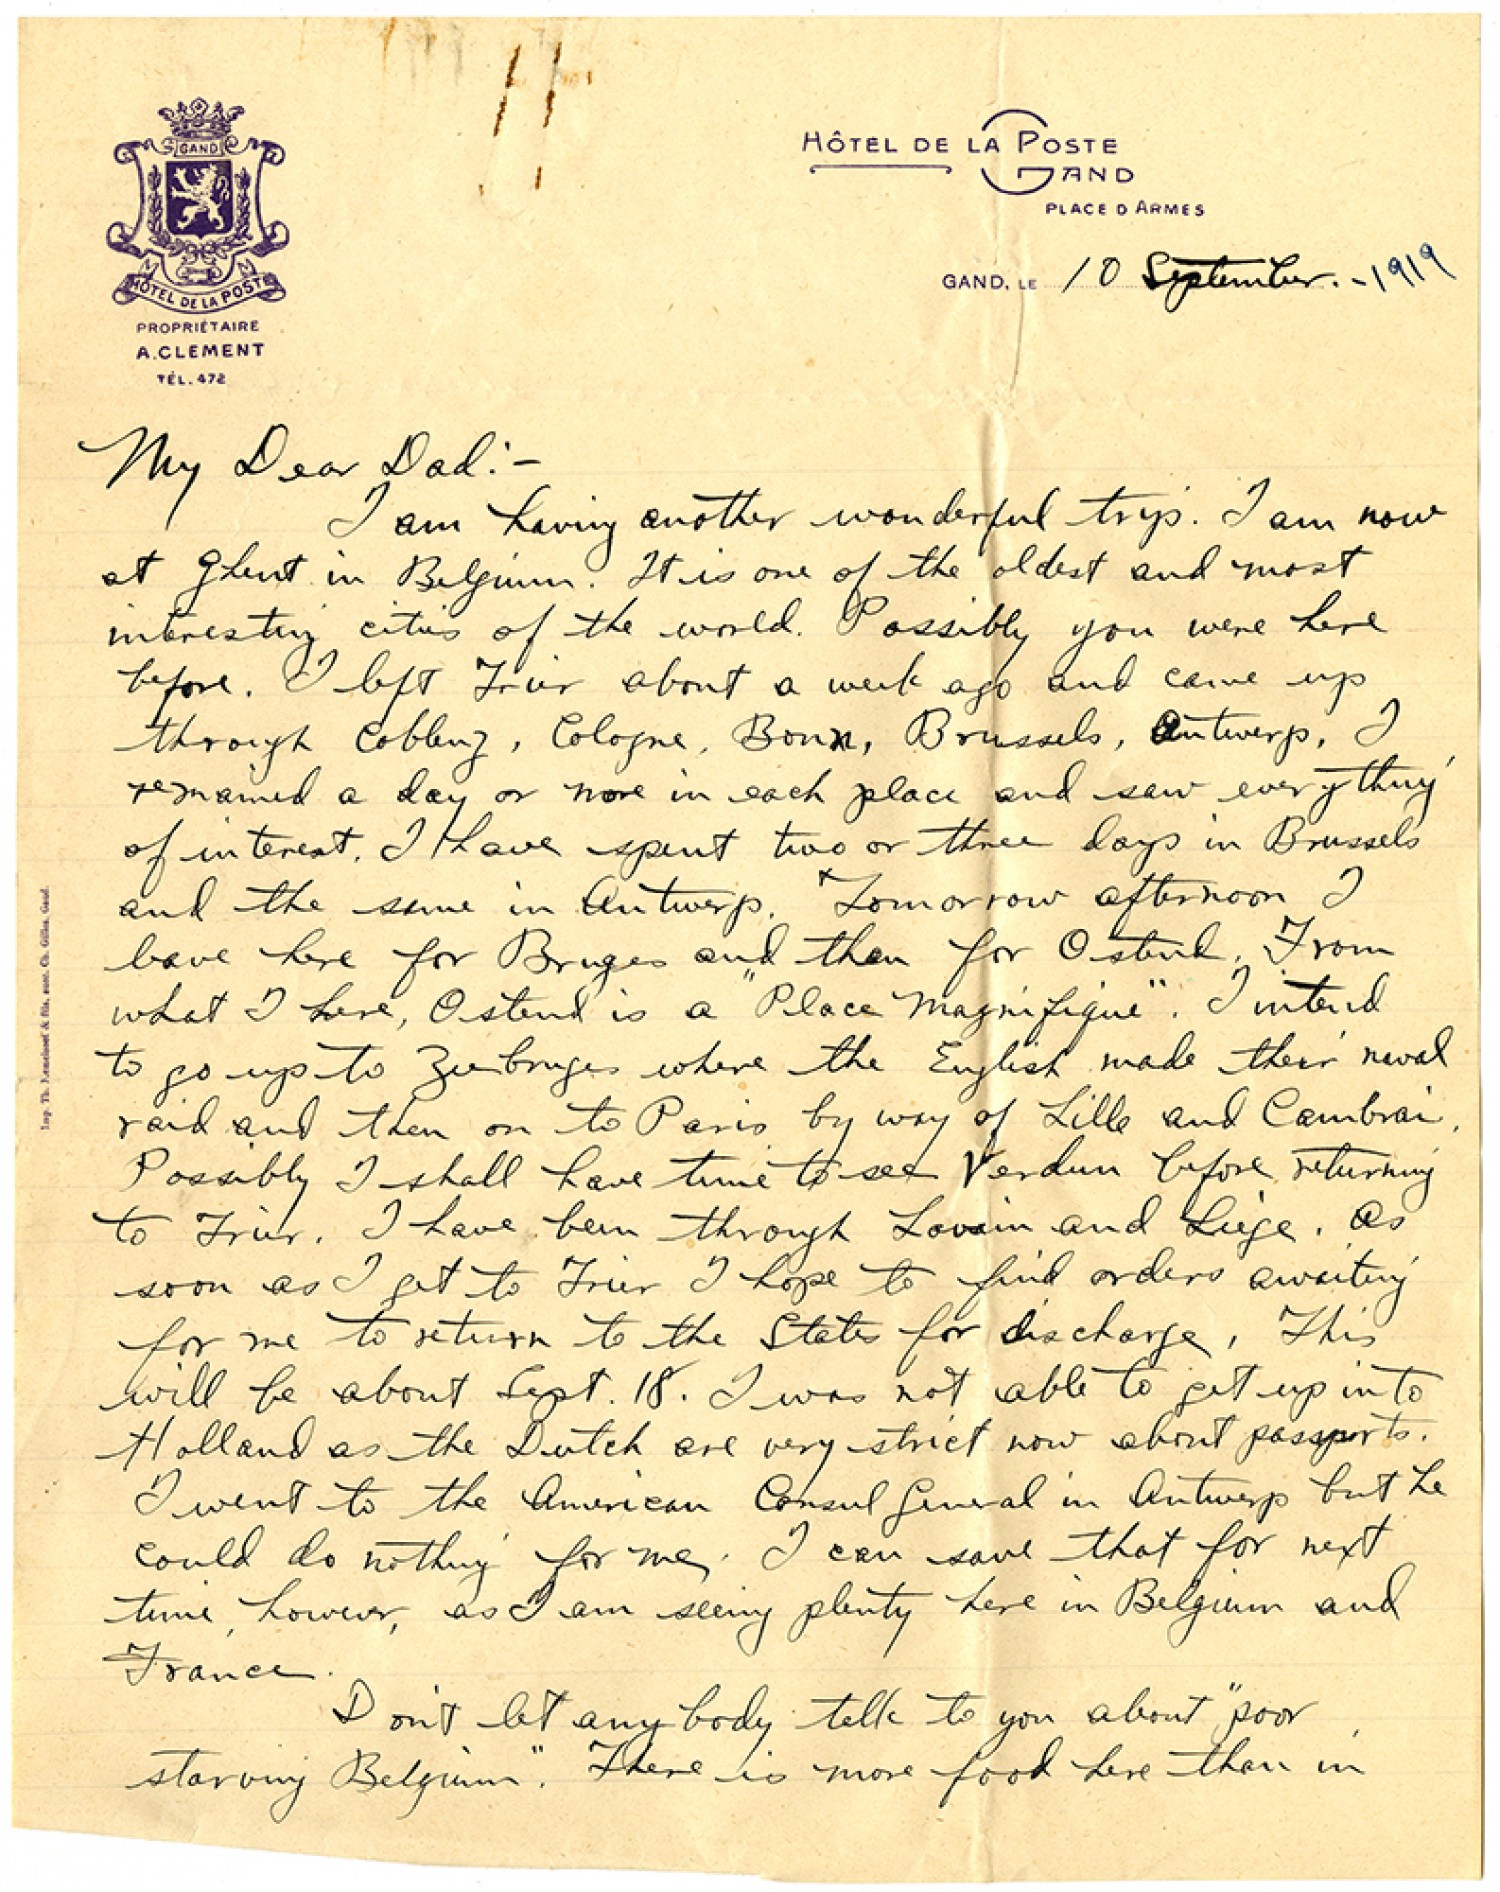 GAND
HÔTEL DE LA POSTE
PROPRIÉTAIRE
A. CLEMENT
TÉL. 472
HÔTEL DE LA POSTE
GAND
PLACE D ARMES
GAND, LE 10 September. -1919
My Dear Dad:-
I am having another wonderful trip. I am now
at Ghent in Belgium. It is one of the oldest and most
interesting cities of the world. Possibly you were here
before. I left Trier about a week ago and came up
through Coblenz, Cologne, Bonn, Brussels, Antwerp, I
remained a day or more in each place and saw everything
of interest. I have spent two or three days in Brussels
and the same in Antwerp. Tomorrow afternoon I
leave here for Bruges and then for Ostend. From
what I here, Ostend is a "Place Magnifique". I intend
to go up to Zeebruges where the English made their naval
raid and then on to Paris by way of Lille and Cambrai.
Possibly I shall have time to see Verdun before returning
to Trier. I have been through Lovain and Liége. As
soon as I get to Trier I hope to find orders awaiting
for me to return to the States for discharge. This
will be about Sept. 18. I was not able to get up into
Holland as the Dutch are very strict now about passports.
I went to the American Consul General in Antwerp but he
could do nothing for me. I can save that for next
time, however, as I am seeing plenty here in Belgium and
France.
Don't let anybody talk to you about "poor
starving Belgium". There is more food here than in